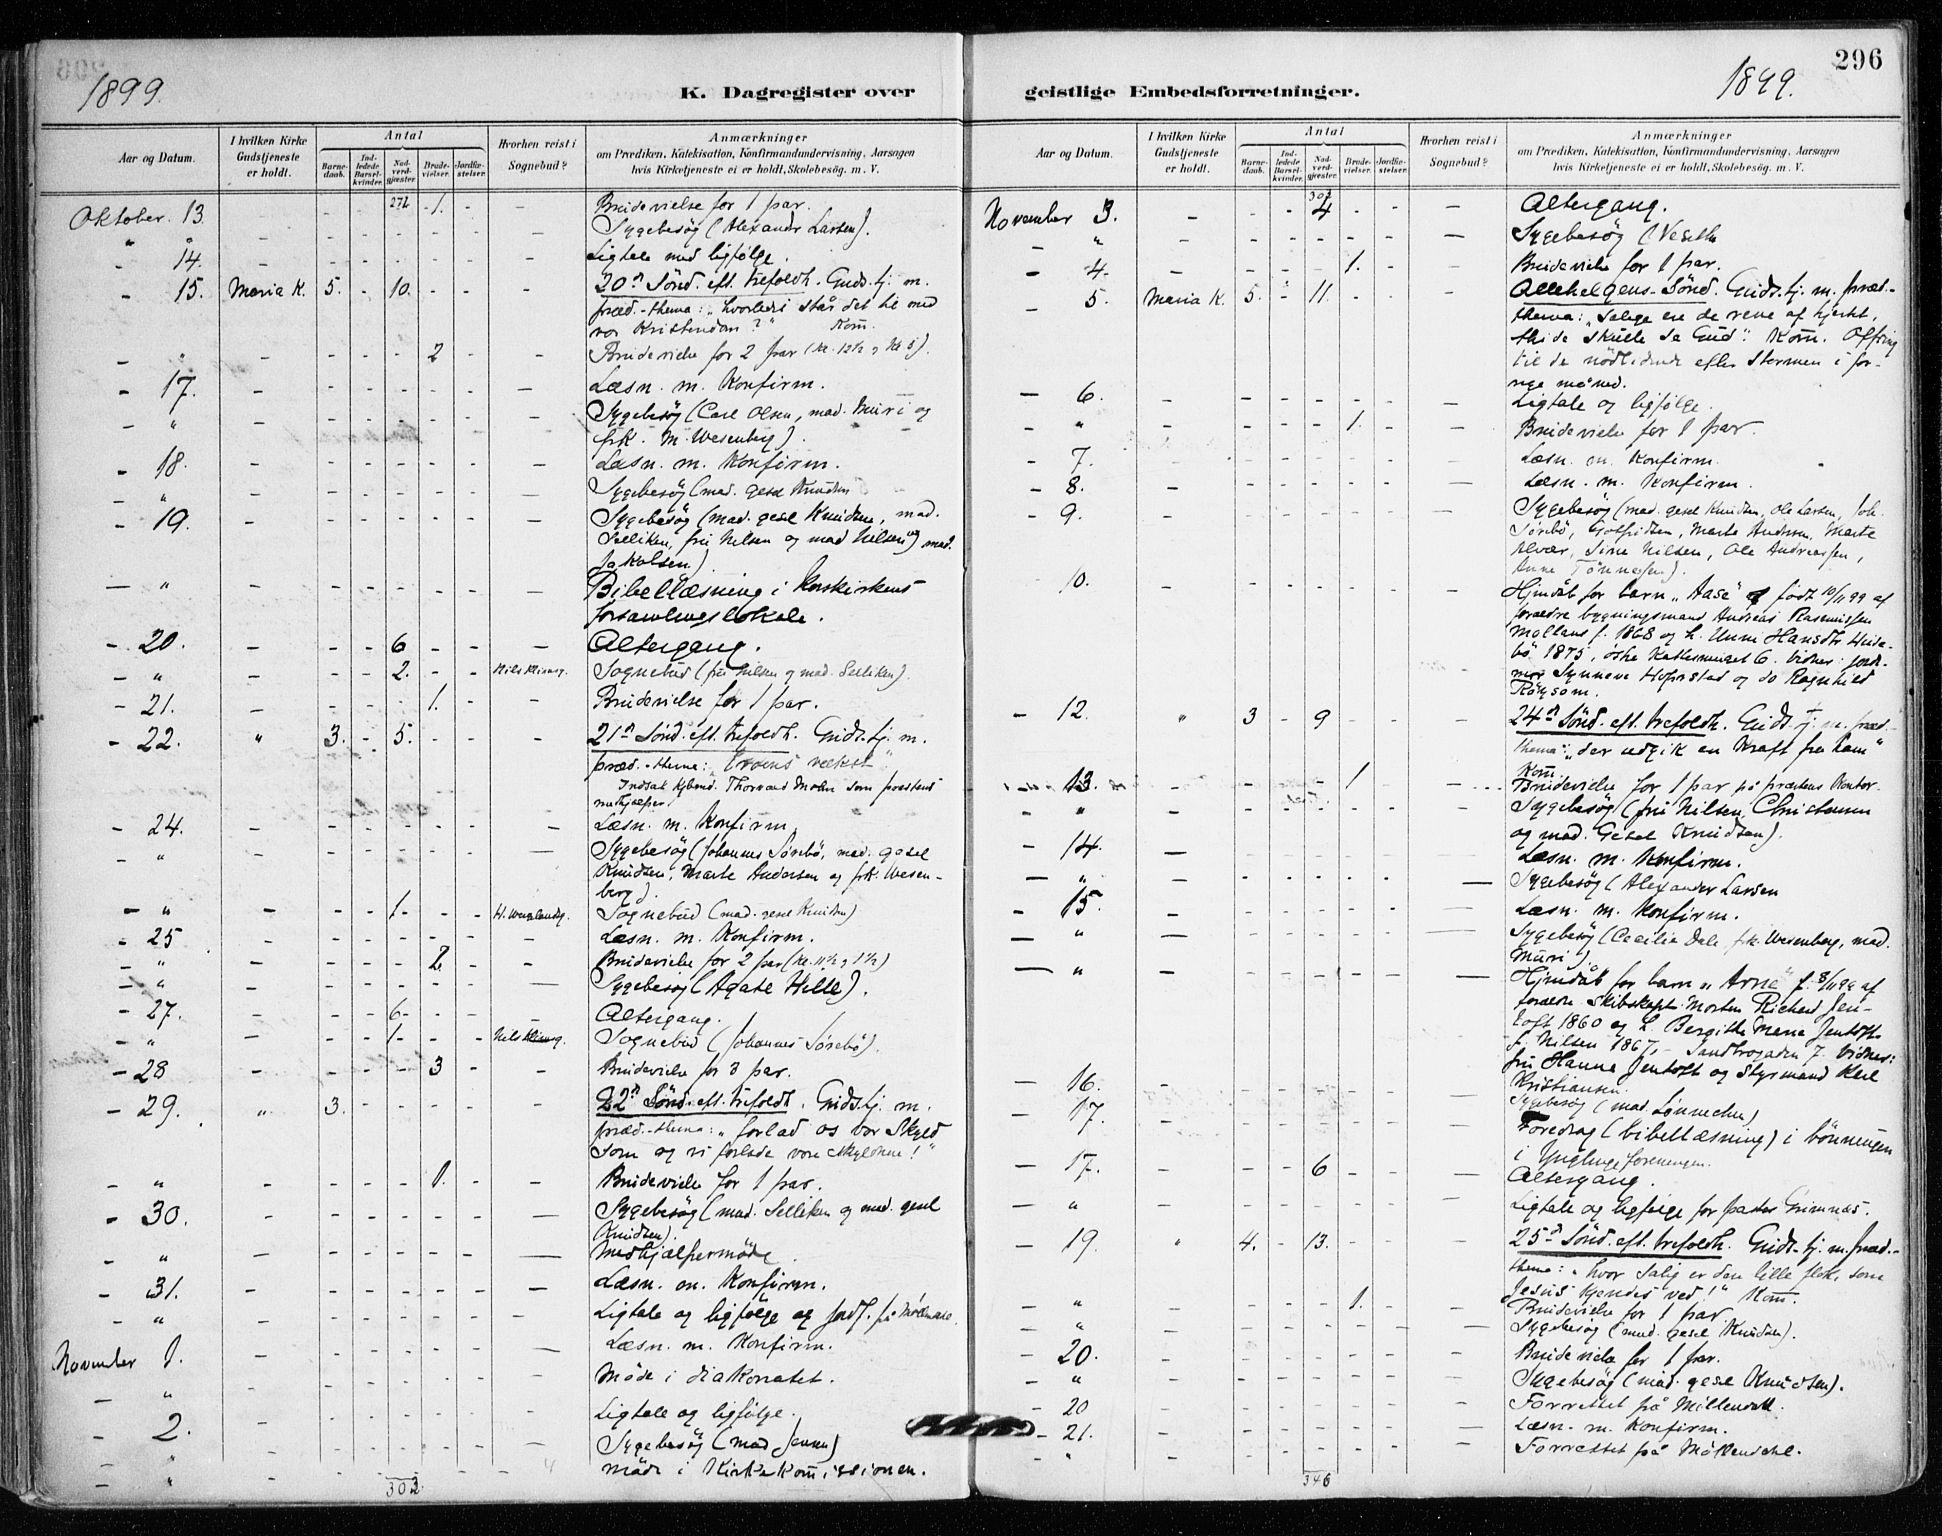 296
1899.
1899.
K. Dagregister over geistlige Embedsforretninger.
Aar og Datum.
I hvilken Kirke Gudstjeneste er holdt.
Antal
Barnedaab.
Indledede Barselkvinder.
Nadverdgjæster.
Brudevielser.
Jordfæstelser.
Hvorhen reist i Sognebud?
Anmærkninger
om Prædiken, Katekisation, Konfirmandundervisning, Aarsagen
hvis Kirketjeneste ei er holdt, Skolebesøg. m. V.
272
Oktober 13. - - - - 1. - - Brudevielse for 1 par.
" " - - - - - - - Sygebesøg (Alexander Larsen).
- 14. - - - - - - - Ligtale med ligfølge.
- 15. Maria K. 5. - 10. - - - 20de Sønd. eft. trefoldh. Gudstj. m.
præd. - thema: "hvorledes står det til med
vor Kristendom?" Kom.
- " - - - - 2 - - Brudevielse for 2 par (kl. 12½ og kl 5).
- 17. - - - - - - - Læsn. m. Konfirm.
- " - - - - - - - Sygebesøg (Carl Olsen, mad. Muri og
frk. M. Wesenberg).
- 18. - - - - - - - Læsn. m. Konfirm.
- " - - - - - - - Sygebesøg (mad. Knudsen
- 19. - - - - - - - Sygebesøg (mad. Knudsen, mad.
Selliken, fru Nilsen og mad Nilsen og mad.
Jakobsen)
- " - - - - - - - Bibellæsning i Korskirkens
forsamlingslokale.
- 20. - - - 6 - - - Altergang.
- " - - - 2. - - Nils Klimsg. Sognebud (fru Nilsen og mad. Selliken).
- 21. - - - - 1. - - Brudevielse for 1 par.
- 22. " 3. - 5. - - - 21de Sønd. eft. trefoldh. Gudstj. m.
præd. - thema: "Troens vækst"
Indsat Thorvald Mohn som præstens
medhjælper.
- 24. - - - - - - - Læsn. m. Konfirm.
- " - - - - - - - Sygebesøg (Johannes Sørebø, mad. gesel
Knudsen, Marte Andersen og frk. Wesen-
berg).
- " - - - 1 - - - Sognebud (mad. gesel Knudsen)
- 25 - - - - - - - Læsn. m. Konfirm.
- " - - - - 2. - - Brudevielse for 2 par (kl. 11½ og 1½)
- " - - - - - - - Sygebesøg (Agate Wille).
- 27. - - - 6 - - - Altergang.
- " - - - 1 - - Nils Klimsg. Sognebud (Johannes Sørebø).
- 28 - - - - 3 - - Brudevielse for 3 par.
- 29. " 3. - - - - - 22de Sønd. eft. trefoldh. Gudstj. m.
præd. - thema: "forlad os vor Skyld
som og vi forlade vore Skyldnere!"
- " - - - - 1. - - Brudevielse for 1 par.
- 30. - - - - - - - Sygebesøg (mad. Selliken og mad. gesel
Knudsen).
- " - - - - - - - Medhjælpermøde
- 31. - - - - - - - Læsn. m. Konfirm.
- " - - - - - - - Ligtale og ligfølge og jordf. på Møllendal.
November 1. - - - - - - - Læsn. m. Konfirm.
- " - - - - - - - Møde i diakonatet.
- 2. - - - - - - - Ligtale og ligfølge.
- " - - - - - - - Sygebesøg (mad Jensen)
- " - - - - - - - Møde i Kirkekommissionen.
302
Aar og Datum.
I hvilken Kirke Gudstjeneste er holdt.
Antal
Barnedaab.
Indledede Barselkvinder.
Nadverdgjæster.
Brudevielser.
Jordfæstelser.
Hvorhen reist i Sognebud?
Anmærkninger
om Prædiken, Katekisation, Konfirmandundervisning, Aarsagen
hvis Kirketjeneste ei er holdt, Skolebesøg. m. V.
302
November 3. - - - 4 - - - Altergang.
- " - - - - - - - Sygebesøg (Veseth
- 4. - - - - 1. - - Brudevielse for 1 par.
- 5. Maria K. 5. - 11. - - - Allehelgens-Sønd. Gudstj. m. præd.-
thema: "Salige ere de rene af hjertet,
thi de skulle se Gud". Kom. Offring
til de nødlidende efter stormen i for-
rige måned.
- 6. - - - - - - - Ligtale og ligfølge.
- " - - - - 1. - - Brudevielse for 1 par.
- 7. - - - - - - - Læsn. m. Konfirm.
- 8. - - - - - - - Læsn. m. Konfirm.
- 9. - - - - - - - Sygebesøg (mad. gesel Knudsen, Ole Larsen, Joh.
Sørebø, Marte Andersen, Marte
Alvær, Sine Nilsen, Ole Andreassen,
Anne Tønnesen).
10. - - - - - - - Hjemdåb for barn "Aase" født 10/11 99 af
forældre bygningsmand Andreas Rasmussen
f. 1868 og h. Unni Hansdtr
1875, 6. vidner: jord-
mor Synneve Hopestad og do Ragnhild
- 12. " 3 - 9 - - - 24de Sønd. eft. trefoldh. Gudstj. m. præd.-
thema: "der udgik en kraft fra ham"
Kom.
- 13. - - - - 1 - - Brudevielse for 1 par på præstens Kontor.
- " - - - - - - - Sygebesøg (fru Nilsen, Christensen
og mad. Gesel Knudsen).
- 14. - - - - - - - Læsn. m. Konfirm.
- " - - - - - - - Sygebesøg (Alexander Larsen
- 15. - - - - - - - Læsn. m. Konfirm.
- " - - - - - - - Sygebesøg (Cecilie Dale, frk. Wesenberg, mad.
Muri).
- " - - - - - - - Hjemdåb for barn "Arne" f. 8/11 99 af
forældre Skibskapt. Morten Richard Jen-
toft 1860 og h. Bergitte Marie Jentoft
f. Nilsen 1867, - Sandbrogaden 7. Vidner:
fru Hanna Jentoft og Styrmand Karl
Kristiansen.
- 16. - - - - - - - Sygebesøg (mad. Lønnechen)
- 17. - - - - - - - Foredrag (bibellæsning) i bønneugen
i Ynglingeforeningen.
- 17. - - - 6 - - - Altergang.
- " - - - - - - - Ligtale og ligfølge for pastor Grimnæs.
- 19. " 4. - 13. - - - 25de Sønd. eft. trefoldh. Gudstj. m. præd.-
thema: "hvor salig er den lille flok, som
Jesus kjendes ved!" Kom.
- " - - - - 1. - - Brudevielse for 1 par
- " - - - - - - - Sygebesøg (mad. gesel Knudsen).
- 20. - - - - - - - Brudevielse for 1 par.
- " - - - - - - - Sygebesøg (mad. gesel Knudsen).
- 20 - - - - - - - Forrettet på Møllendal.
- 21. - - - - - - - Læsn. m. Konfirm.
- " - - - - - - - Forrettet på Møllendal.
346